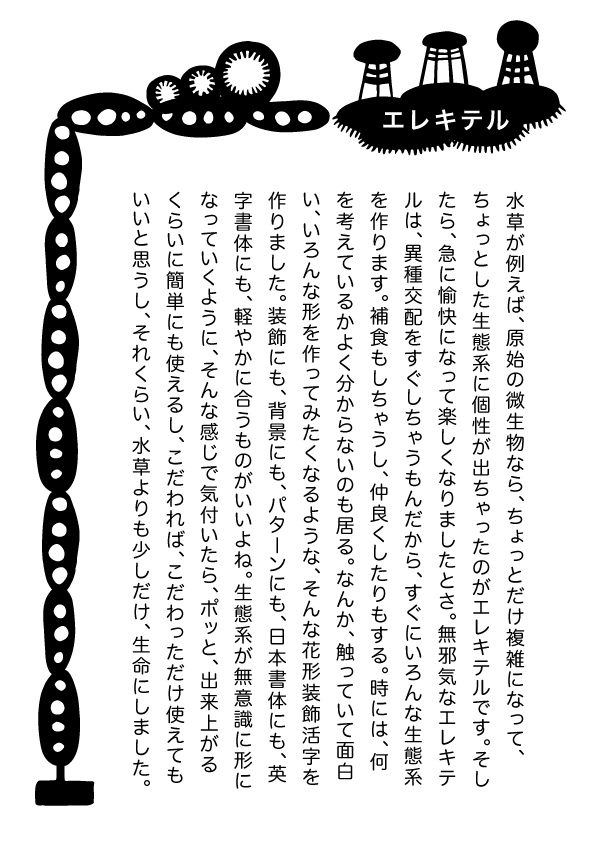 エレキテル
水草が例えば、原始の微生物なら、ちょっとだけ複雑になって、
ちょっとした生態系に個性が出ちゃったのがエレキテルです。そし
たら、急に愉快になって楽しくなりましたとさ。無邪気なエレキテ
ルは、異種交配をすぐしちゃうもんだから、すぐにいろんな生態系
を作ります。補食もしちゃうし、仲良くしたりもする。時には、何
を考えているかよく分からないのも居る。なんか、触っていて面白
い、いろんな形を作ってみたくなるような、そんな花形装飾活字を
作りました。装飾にも、背景にも、パターンにも、日本書体にも、英
字書体にも、軽やかに合うものがいいよね。生態系が無意識に形に
なっていくように、そんな感じで気付いたら、ポッと、出来上がる
くらいに簡単にも使えるし、こだわれば、こだわっただけ使えても
いいと思うし、それくらい、水草よりも少しだけ、生命にしました。